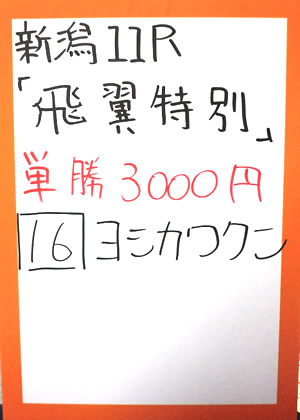 新潟11R
「飛翼特別」
単勝3000円
16ヨシカワクン